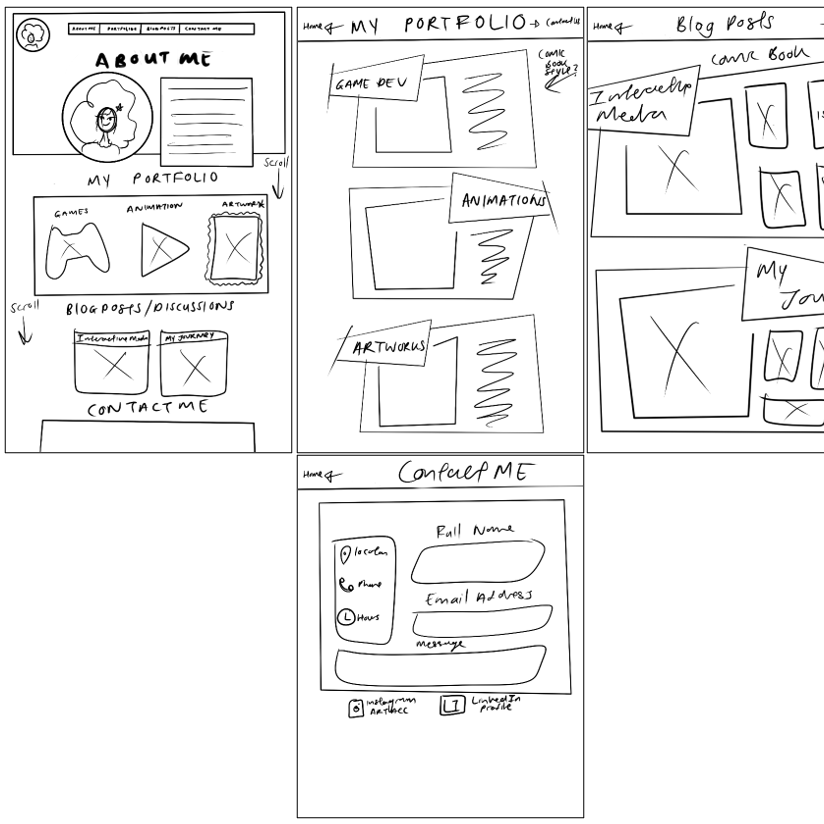 ABOUT ME PORTFOLIO BLOG POSTS CONTACT ME
ABOUT ME
Scroll
MY PORTFOLIO
GAMES ANIMATION ARTWORK
Scroll
BLOG POSTS/DISCUSSIONS
Interactive Media MY JOURNEY
CONTACT ME
Home MY PORTFOLIO Contact us
Comic
Book
Style?
GAME DEV
ANIMATIONS
ARTWORKS
Home Blog Posts
Comic Book
Media
My
Jou
Home Contact ME
Full Name
location
Phone
Email Address
Hours
Message
Instagram
LinkedIn
Profile